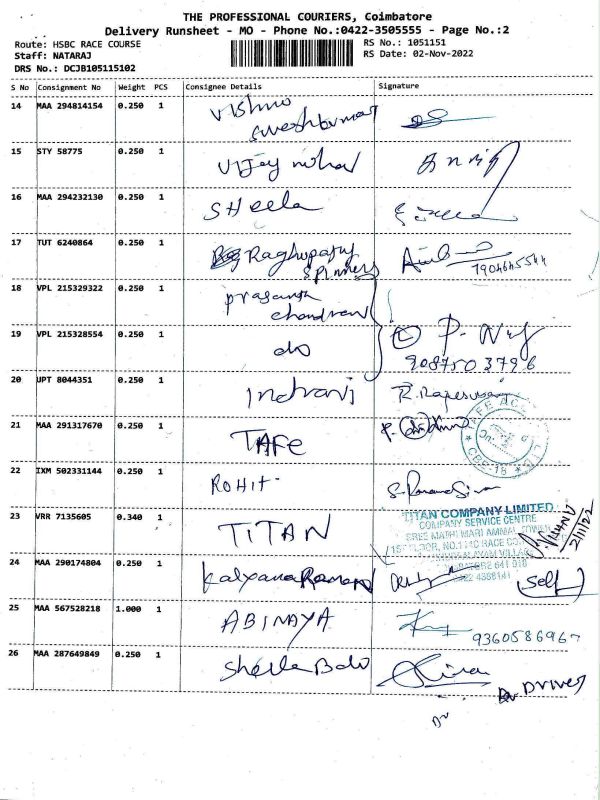 THE PROFESSIONAL COURIERS, Coimbatore
Delivery Runsheet - MO - Phone No.:0422-3505555 - Page No.:2
Route: HSBC RACE COURSE
RS No.: 1051151
Staff: NATARAJ
RS Date: 02-Nov-2022
DRS No.: DCJB105115102
S No Consignment No Weight PCS Consignee Details Signature
14 MAA 294814154 0.250 1 Vishnu
Sureshkumar
15 STY 58775 0.250 1 Vijay
16 MAA 294232130 0.250 1 Sheela
17 TUT 6240864 0.250 1 Raghupathy
Spinners
7904645544
18 VPL 215329322 0.250 1 Prasanth
chandran
19 VPL 215328554 0.250 1 do
9087503796
20 UPT 8044351 0.250 1 Indrani
21 MAA 291317670 0.250 1 TAFE
22 IXM 502331144 0.250 1 ROHIT
23 VRR 7135605 0.340 1 TITAN
TITAN COMPANY LIMITED
COMPANY SERVICE CENTRE
2/11/22
24 MAA 290174804 0.250 1 Kalyanaraman (Self)
25 MAA 567528218 1.000 1 ABINAYA
9360586967
26 MAA 287649849 0.250 1 Sheela Balo
Driver